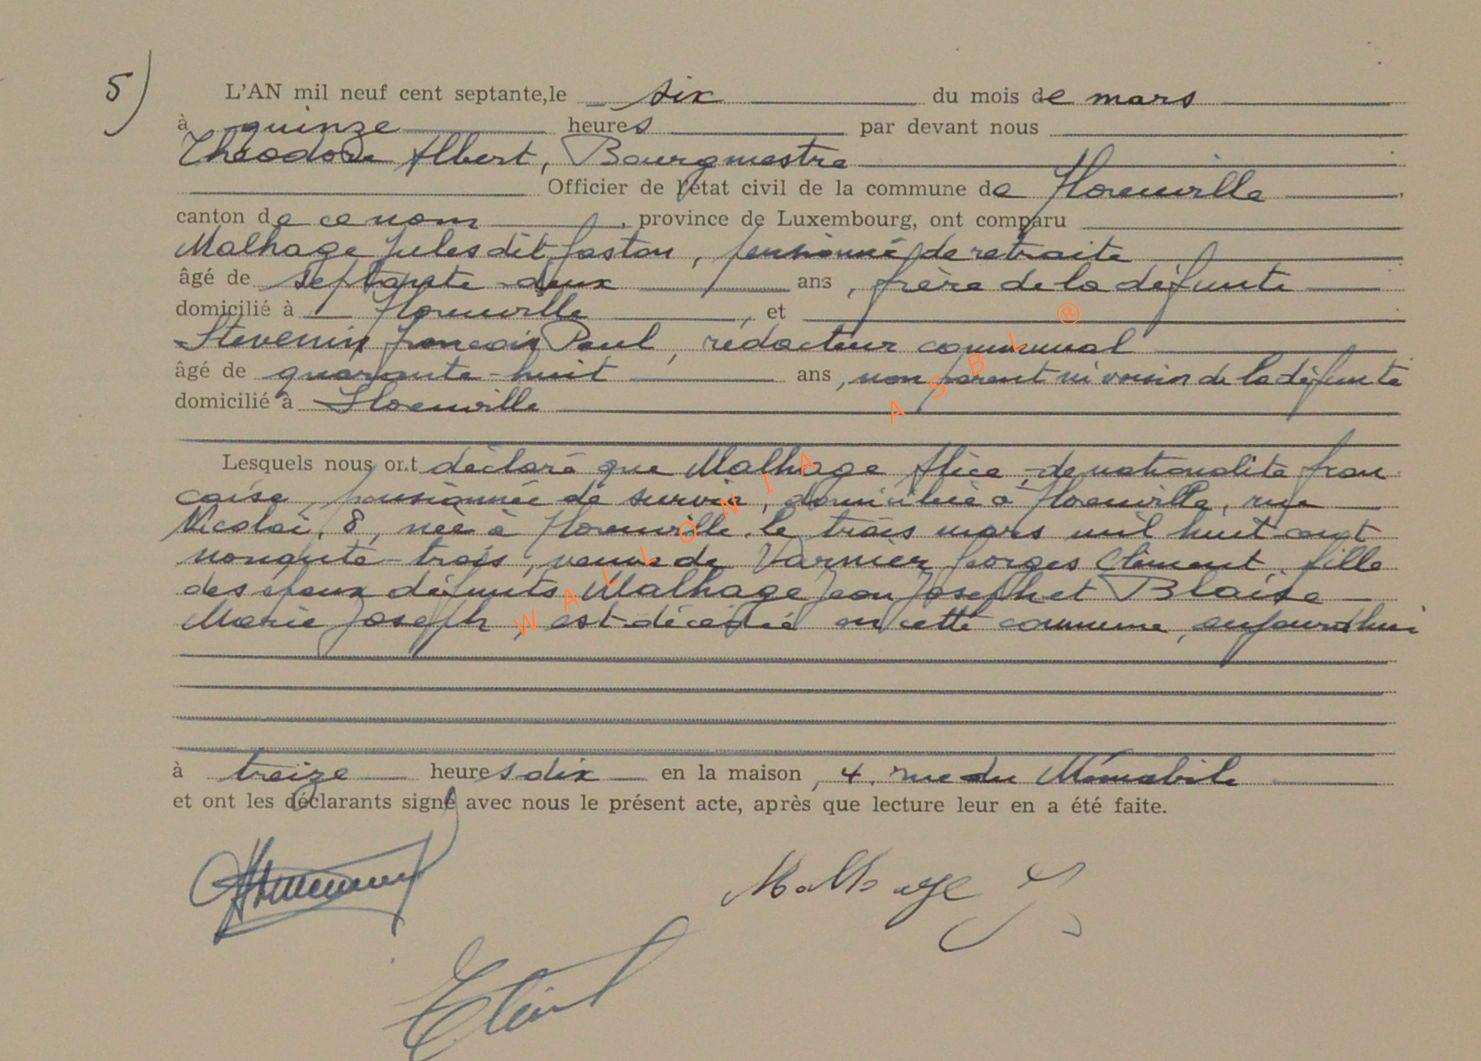 5)
L'AN mil neuf cent septante, le six du mois de mars
à quinze heures par devant nous
Théodore Albert, Bourgmestre
Officier de l'état civil de la commune de Florenville
canton de ce nom, province de Luxembourg, ont comparu
Malhage Jules dit Gaston, pensionné de retraite
âgé de septante-deux ans, frère de la défunte
domicilié à Florenville, et
Stevenin François Paul, rédacteur communal
âgé de quarante-huit ans, non parent ni voisin de la défunte
domicilié à Florenville
Lesquels nous ont déclaré que Malhage Alice, de nationalité fran
çaise, pensionnée de survie, domiciliée à Florenville, rue
Nicolaï, 8, née à Florenville le trois mars mil huit cent
nonante-trois, veuve de Varnier Georges Clément, fille
des époux défunts Malhage Jean Joseph et Blaise
Marie Joseph, est décédée en cette commune, aujourd'hui
à treize heures dix en la maison, 4, rue du Miroabile
et ont les déclarants signé avec nous le présent acte, après que lecture leur en a été faite.
Malhage J
WALLONIA ASBL ®